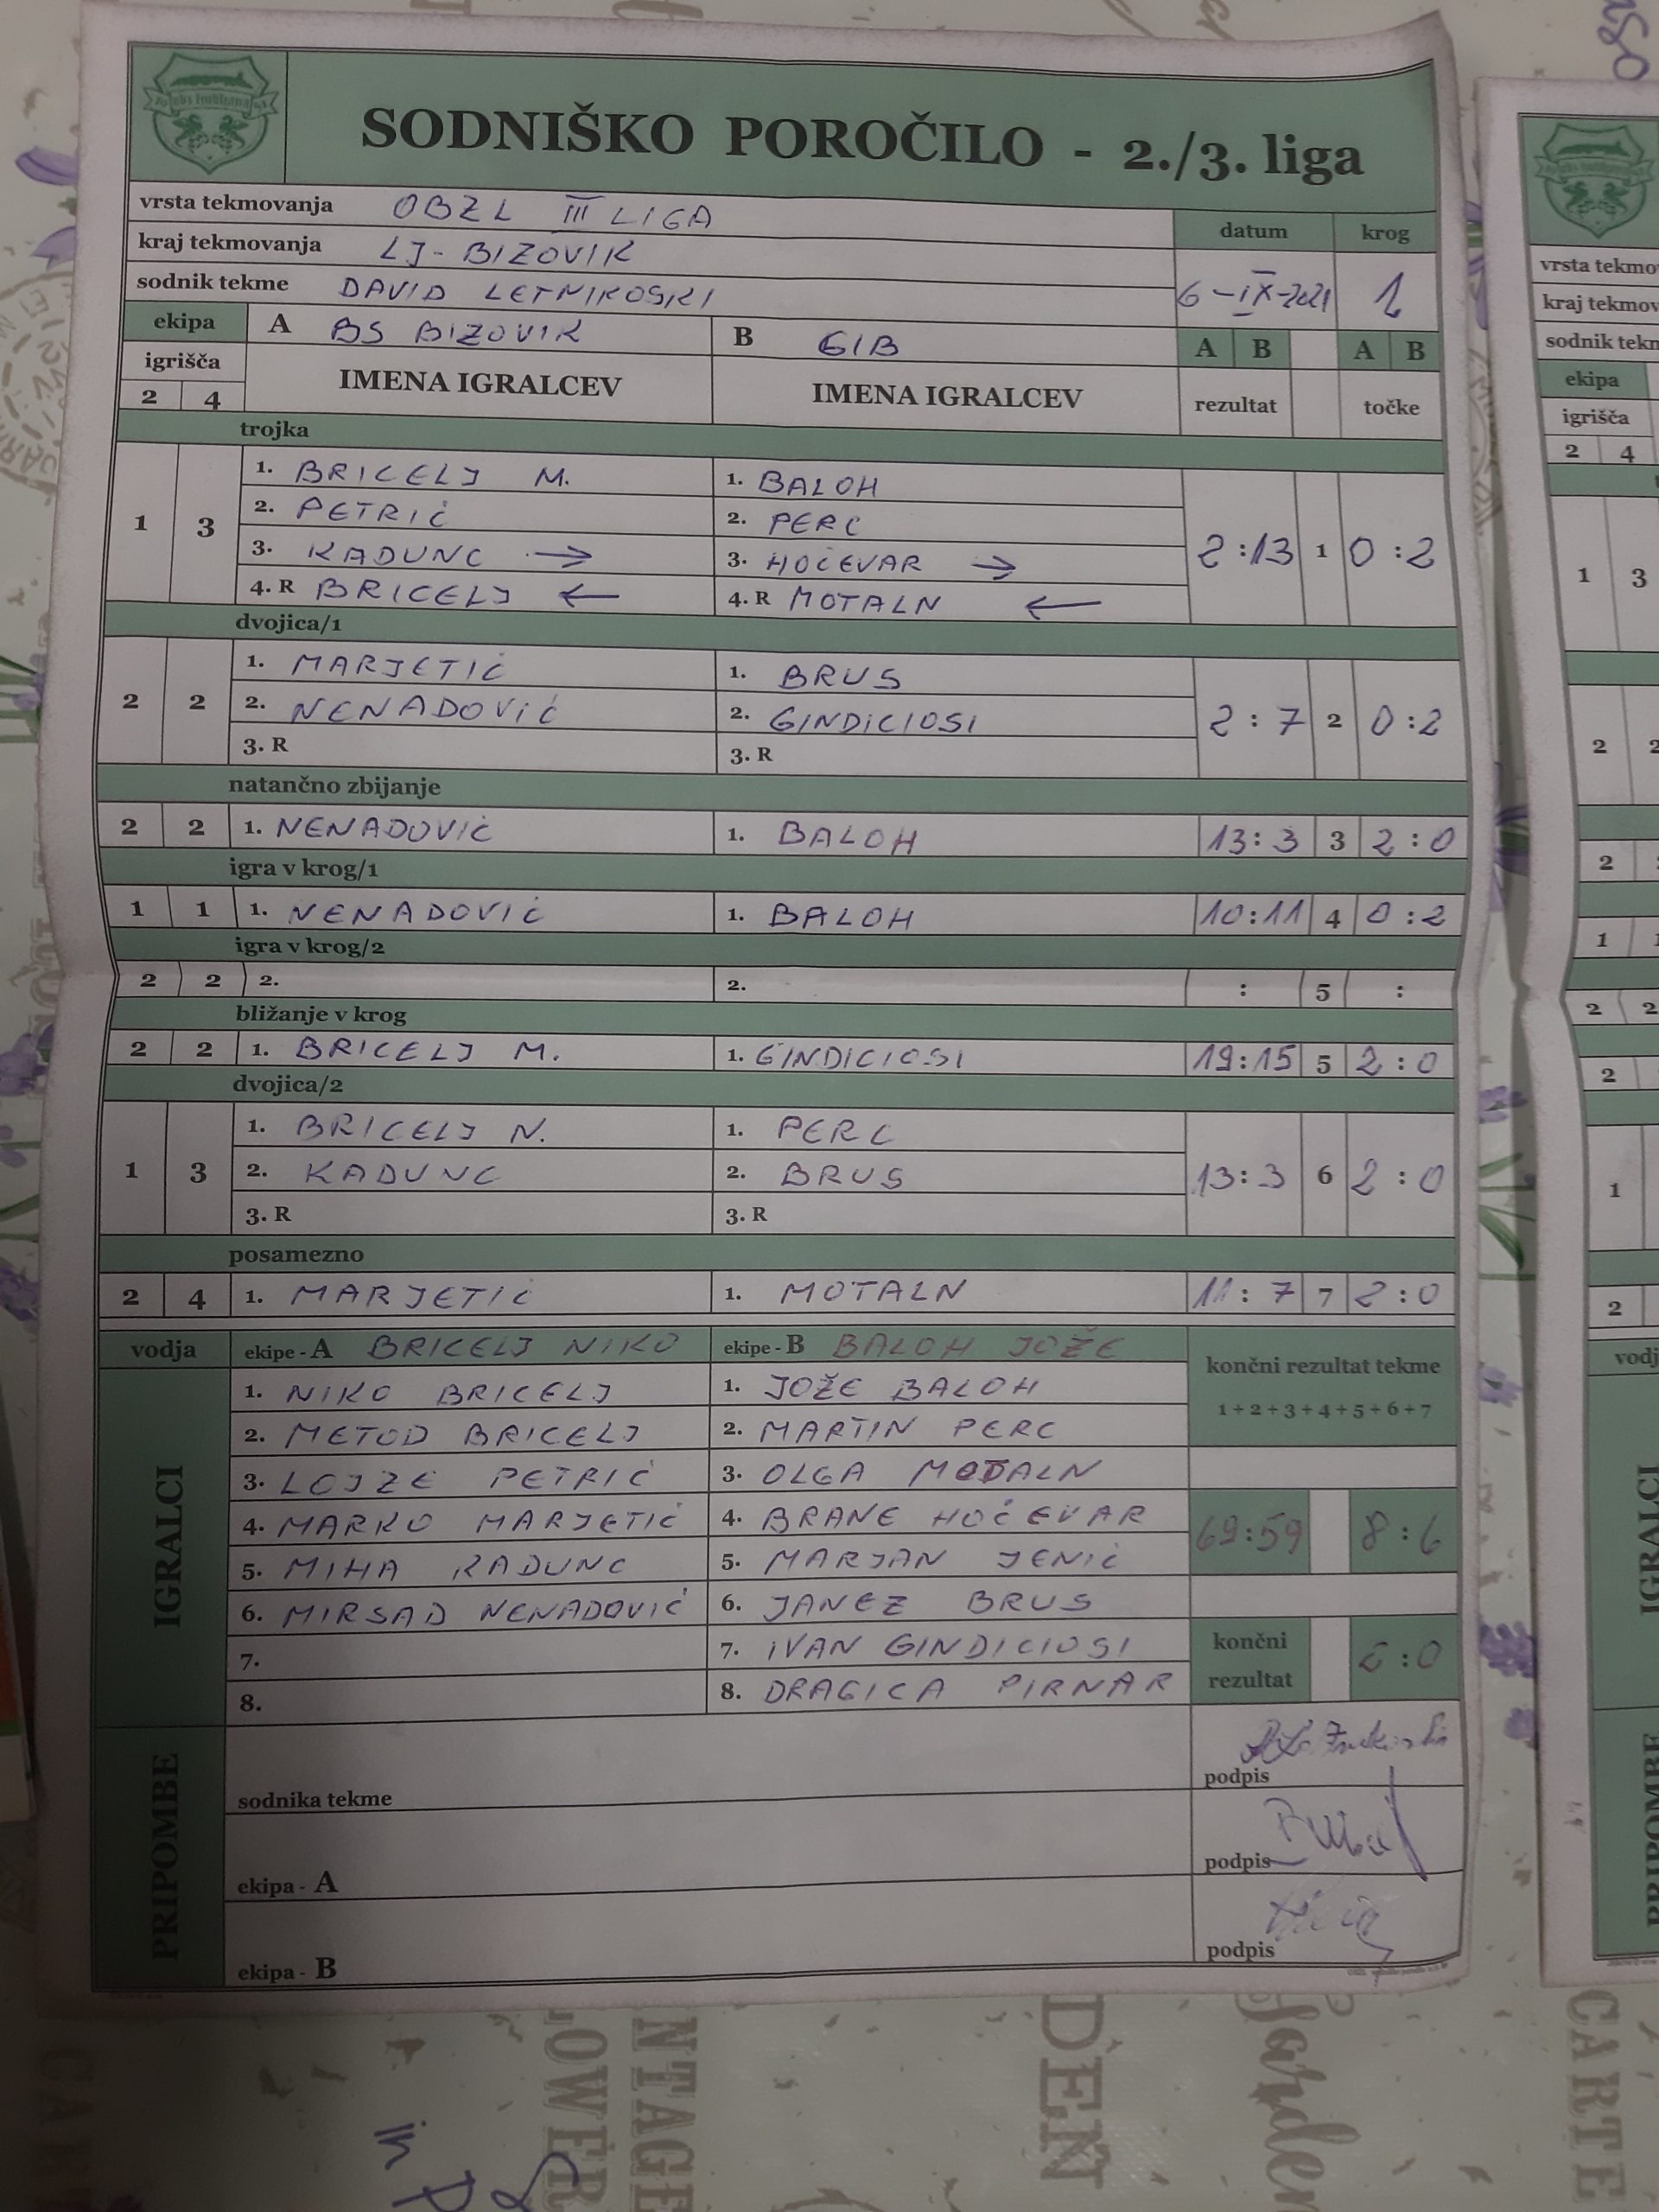 SODNIŠKO POROČILO - 2./3. liga
vrsta tekmovanja OBZL III LIGA
datum krog
kraj tekmovanja LJ- BIZOVIK
sodnik tekme DAVID LETNIKOSKI
6-IX-2021 1
ekipa A BS BIZOVIK B GIB A B A B
igrišča IMENA IGRALCEV IMENA IGRALCEV rezultat točke
2 4
trojka
1. BRICELJ M. 1. BALOH
2. PETRIČ 2. PERC
1 3 3. KADUNC → 3. HOČEVAR → 2:13 1 0:2
4. R BRICELJ ← 4. R MOTALN ←
dvojica/1
1. MARJETIČ 1. BRUS
2 2 2. NENADOVIČ 2. GINDICIOSI 2:7 2 0:2
3. R 3. R
natančno zbijanje
2 2 1. NENADOVIČ 1. BALOH 13:3 3 2:0
igra v krog/1
1 1 1. NENADOVIČ 1. BALOH 10:11 4 0:2
igra v krog/2
2 2 2. 2. : 5 :
bližanje v krog
2 2 1. BRICELJ M. 1. GINDICIOSI 19:15 5 2:0
dvojica/2
1. BRICELJ N. 1. PERC
1 3 2. KADUNC 2. BRUS 13:3 6 2:0
3. R 3. R
posamezno
2 4 1. MARJETIČ 1. MOTALN 11:7 7 2:0
vodja ekipe - A BRICELJ NIKO ekipe - B BALOH JOŽE
končni rezultat tekme
1+2+3+4+5+6+7
IGRALCI
1. NIKO BRICELJ 1. JOŽE BALOH
2. METOD BRICELJ 2. MARTIN PERC
3. LOJZE PETRIČ 3. OLGA MOTALN
4. MARKO MARJETIČ 4. BRANE HOČEVAR
69:59 8:6
5. MIHA KADUNC 5. MARJAN JENIČ
6. MIRSAD NENADOVIČ 6. JANEZ BRUS
7. 7. IVAN GINDICIOSI
končni rezultat :0
8. 8. DRAGICA PIRNAR
PRIPOMBE
sodnika tekme podpis
ekipa - A podpis
ekipa - B podpis
vrsta tekmo
kraj tekmov
sodnik tekn
ekipa
igrišča
2 4
1 3
2 2
2
1
2 2
2
1
2
vodj
IGRALCI
PRIPOMBE
DEN
CARTE